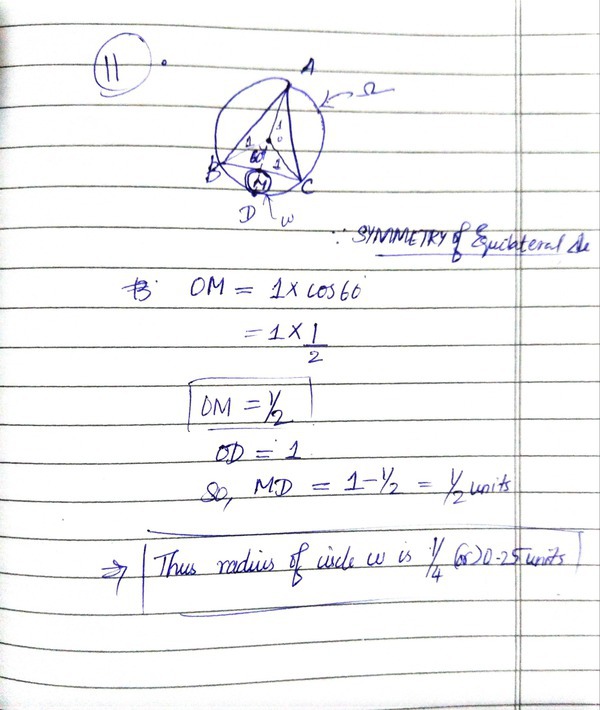 11 .
A
Ω
1
O
1
60°
1
B
M
C
D
ω
∵ SYMMETRY of Equilateral Δle
OM = 1 × cos 60
= 1 × 1/2
OM = 1/2
OD = 1
So, MD = 1 - 1/2 = 1/2 units
⇒ Thus radius of circle ω is 1/4 (or) 0.25 units